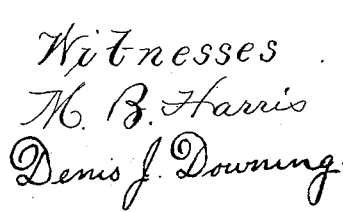 Witnesses
M. B. Harris
Denis J. Downing.